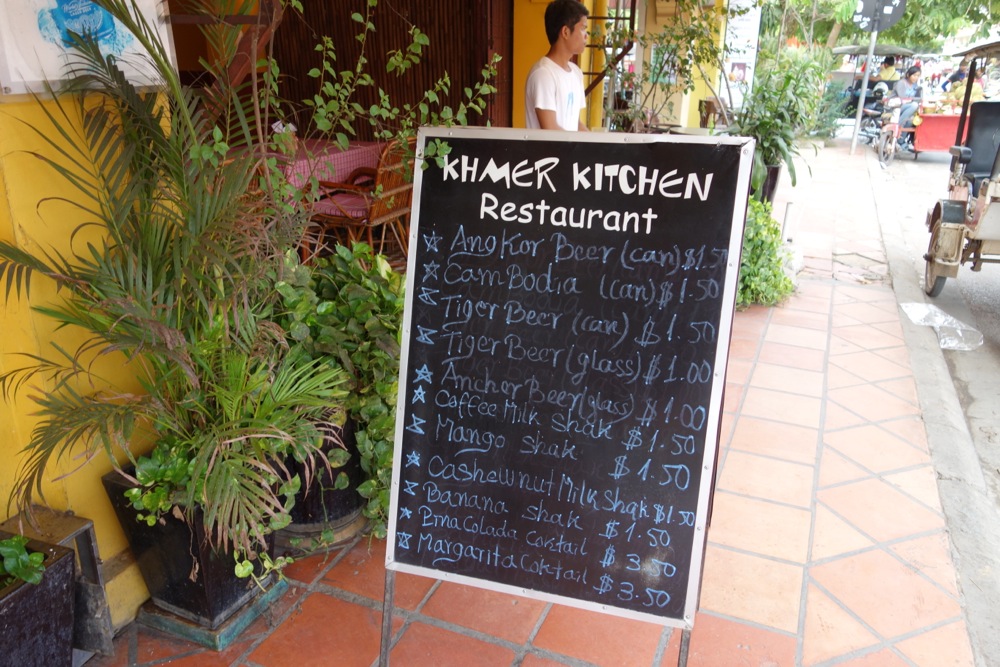 KHMER KITCHEN
Restaurant
Angkor Beer (can) $1.50
CamBodia (can) $1.50
Tiger Beer (can) $1.50
Tiger Beer (glass) $1.00
Anchor Beer (glass) $1.00
Coffee Milk Shak $1.50
Mango Shak $1.50
Cashewnut Milk Shak $1.50
Banana Shak $1.50
Pina Colada Cocktail $3.50
Margarita Coktail $3.50